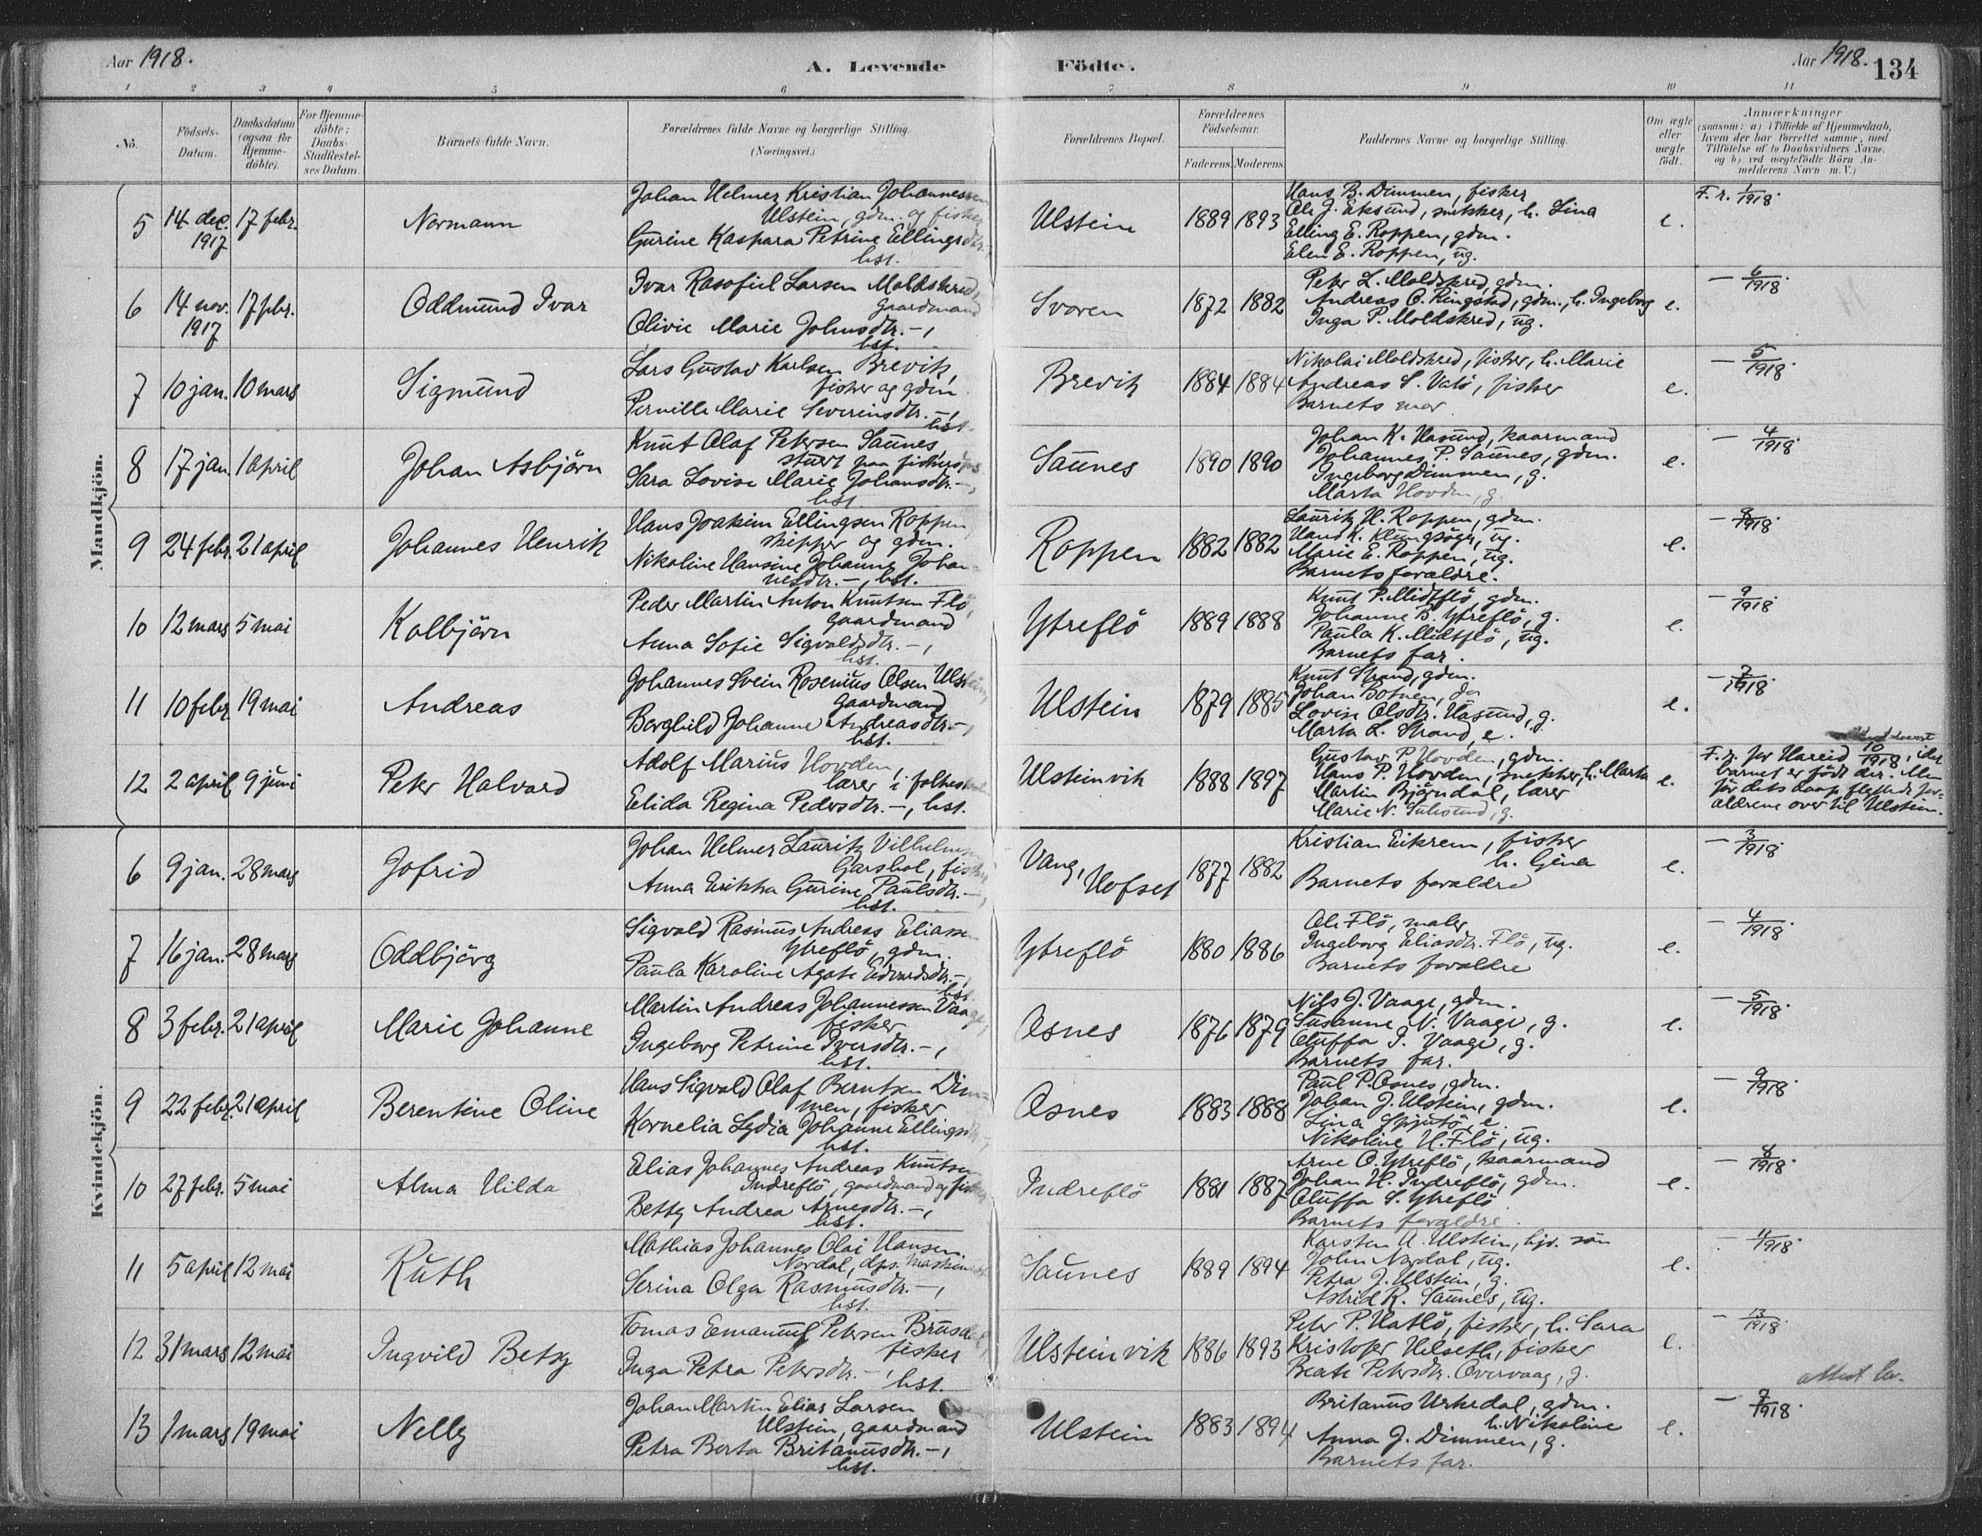 Aar 1918.
A. Levende Födte.
Aar 1918. 134
1 2 3 4 5 6 7 8 9 10 11
No.
Födsels-Datum.
Daabsdatum (ogsaa for Hjemme-döbte).
For Hjemme-döbte: Daabs-Stadfæstel-ses Datum.
Barnets fulde Navn.
Forældrenes fulde Navne og borgerlige Stilling. (Næringsvei.)
Forældrenes Bopæl.
Forældrenes Födselsaar.
Faderens. Moderens.
Faddernes Navne og borgerlige Stilling.
Om ægte eller uægte födt.
Anmærkninger
(saasom: a) i Tilfælde af Hjemmedaab, hvem der har forrettet samme, med Tilföielse af to Daabsvidners Navne, og b) ved uægtefödte Börn An-melderens Navn m. V.)
Mandkjön.
5 14 dec. 1917 17 febr. Normann
Johan Helmer Kristian Johannessen
Ulstein, gdm. og fisker
Gurine Kaspara Petrine Ellingsdtr.
hst.
Ulstein 1889 1893
Hans B. Dimmen, fisker
Ole J. Eksund, snekker, h. Lina
Elling E. Roppen, gdm.
Elen E. Roppen, ug.
e. F. r. 1/1918
6 14 nov. 1917 17 febr. Oddmund Ivar
Ivar Rasofiel Larsen Moldskred,
gaardmand
Olivie Marie Johnsdtr. –,
hst.
Svoren 1872 1882
Peter L. Moldskred, gdm.
Andreas O. Ringstad, gdm., h. Ingeborg
Inga P. Moldskred, ug.
e. – 6/1918.
7 10 jan. 10 mars Sigmund
Lars Gustav Karlsen Brevik,
fisker og gdm.
Pernille Marie Severinsdtr. –,
hst.
Brevik 1884 1884
Nikolai Moldskred, fisker, h. Marie
Andreas S. Vatö, fisker
Barnets mor.
e. – 5/1918.
8 17 jan. 1 april Johan Asbjörn
Knut Olaf Petersen Saunes,
stuert paa
Sara Lovise Marie Johansdtr. –,
hst.
Saunes 1890 1890
Johan K. Hasund, kaarmand
Johannes P. Saunes, gdm.
Ingeborg Dimmen, g.
Marta Hovden, g.
e. – 4/1918.
9 24 febr. 21 april Johannes Henrik
Hans Joakim Ellingsen Roppen
skipper og gdm.
Nikoline Hansine Johanne Johan-
nesdtr. –, hst.
Roppen 1882 1882
Lauritz H. Roppen, gdm.
Hans K. Klungsöyr, ug.
Marie E. Roppen, ug.
Barnets forældre.
e. – 8/1918.
10 12 mars 5 mai Kolbjörn
Peder Martin Anton Knutsen Flö,
gaardmand
Anna Sofie Sigvaldsdtr. –,
hst.
Ytreflö 1889 1888
Knut P. Midtflö, gdm.
Johanne B. Ytreflö, g.
Paula K. Midtflö, ug.
Barnets far.
e. – 9/1918.
11 10 febr. 19 mai Andreas
Johannes Svein Rosenius Olsen Ulstein,
gaardmand
Borghild Johanne Andreasdtr. –,
hst.
Ulstein 1879 1885
Knut Strand, gdm.
Johan Botnen, do
Lovise Olsdtr. Hasund, g.
Marta L. Strand, e.
e. – 7/1918.
12 2 april 9 juni Peter Halvard
Adolf Marius Hovden,
lærer i
Elida Regina Pedersdtr. –, hst.
Ulsteinvik 1888 1897
Gustav P. Hovden, gdm.
Hans P. Hovden, snekker, h. Marta
Martin Björndal, lærer
Marie N.
e.
F. r. for Hareid 10/1918, idet
barnet er födt der. Men
för dets daap flyttede for-
ældrene over til Ulstein.
Kvindekjön.
6 9 jan. 28 mars Jofrid
Johan Helmer Lauritz Vilhelmsen
Garshol, fisker
Anna Erikka Gurine Paulsdtr. –,
hst.
Vang, Hofset 1877 1882
Kristian Eikrem, fisker
h. Gina
Barnets forældre
e. – 3/1918.
7 16 jan. 28 mars Oddbjörg
Sigvald Rasmus Andreas Eliassen
Ytreflö, gdm.
Paula Karoline Agate Edvardsdtr. –,
hst.
Ytreflö 1880 1886
Ole Flö, maler
Ingeborg Eliasdtr. Flö, ug.
Barnets forældre
e. – 4/1918.
8 3 febr. 21 april Marie Johanne
Martin Andreas Johannessen Vaage,
fisker
Ingeborg Petrine Iversdtr. –,
hst.
Osnes 1876 1879
Nils J. Vaage, gdm.
Susanne N. Vaage, g.
Oluffa J. Vaage, g.
Barnets far.
e. – 5/1918.
9 22 febr. 21 april Berentine Oline
Hans Sigvald Olaf Berntsen Dim-
men, fisker
Kornelia Lydia Johanne Ellingsdtr. –,
hst.
Osnes 1883 1888
Paul P. Osnes, gdm.
Johan J. Ulstein, gdm.
Lina Spjutö, e.
Nikoline H. Flö, ug.
e. – 9/1918.
10 27 febr. 5 mai Alma Hilda
Elias Johannes Andreas Knutsen
Indreflö, gaardmand og fisker
Betsy Andrea Arnesdtr. –,
hst.
Indreflö 1881 1887
Arne O. Ytreflö, kaarmand
Johan H. Indreflö, gdm.
Oluffa S. Ytreflö
Barnets forældre.
e. – 8/1918.
11 5 april 12 mai Ruth
Mathias Johannes Olai Hansen
Nordal, dps. maskinist
Serina Olga Rasmusdtr. –,
hst.
Saunes 1889 1894
Karsten A. Ulstein, hjv. sön
John Nordal, ug.
Petra J. Ulstein, g.
Astrid R. Saunes, ug.
e. – 4/1918.
12 31 mars 12 mai Ingvild Betsy
Tomas Emanuel Petersen Brusdal,
fisker
Inga Petra Petersdtr. –,
hst.
Ulsteinvik 1886 1893
Peter P. Hatlö, fisker, h. Sara
Kristofer Helseth, fisker
Beate Petersdtr. Overvaag, g.
e. – 13/1918.
attest lev.
13 1 mars 19 mai Nelly
Johan Martin Elias Larsen
Ulstein, gaardmand
Petra Berta Britanusdtr. –,
hst.
Ulstein 1883 1894
Britanus Urkedal, gdm.
h. Nikoline
Anna J. Dimmen, g.
Barnets far.
e. – 7/1918.